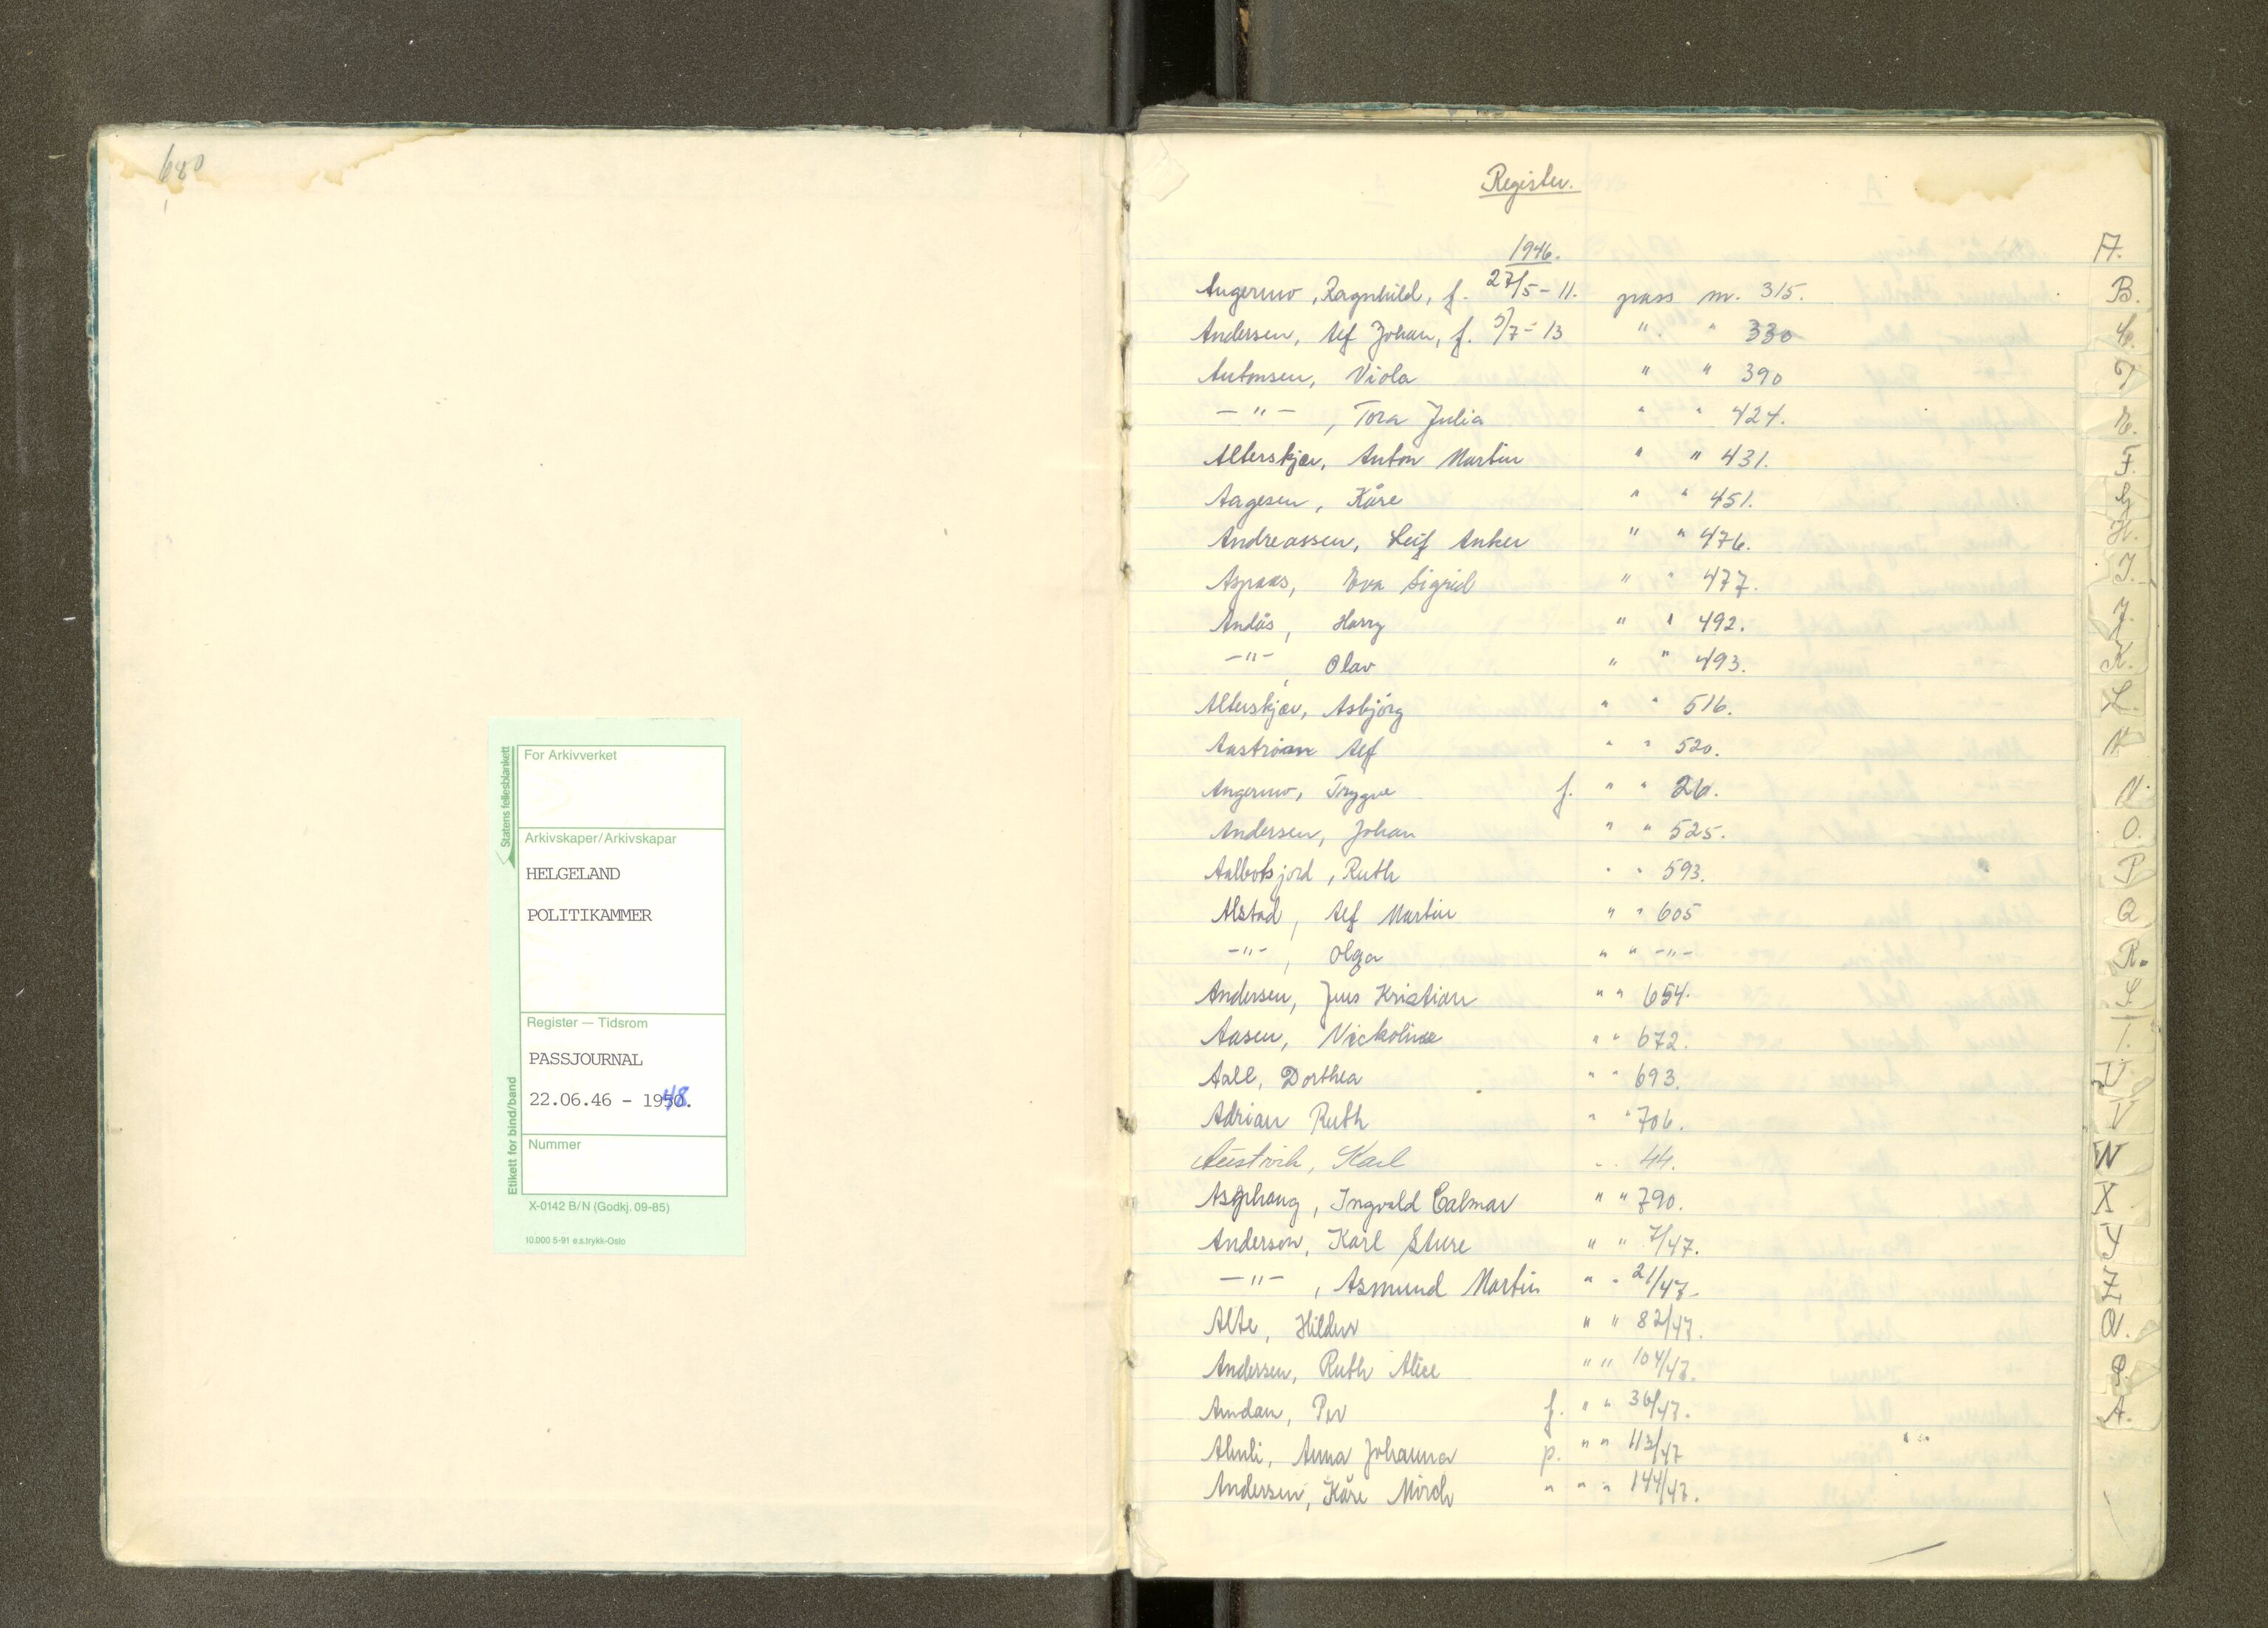 680
Statens fellesblankett
Etikett for bind/band
For Arkivverket
Arkivskaper/Arkivskapar
HELGELAND
POLITIKAMMER
Register — Tidsrom
PASSJOURNAL
22.06.46 - 1948.
Nummer
X-0142 B/N (Godkj. 09-85)
10.000 5-91 e.s.trykk-Oslo
Register.
1946.
Angermo, Ragnhild, f. 27/5-11. pass nr. 315.
Andersen, Alf Johan, f. 5/7-13 " " 330
Antonsen, Viola " " 390
-"- , Tora Julia " " 424.
Alterskjær, Anton Martin " " 431.
Aagesen, Kåre " " 451.
Andreassen, Leif Anker " " 476.
Aspaas, Eva Sigrid " " 477.
Andås, Harry " " 492.
-"- , Olav " " 493.
Alterskjær, Asbjörg " " 516.
Aastrøm Alf " " 520.
Angermo, Trygve f. " " 26.
Andersen, Johan " " 525.
Aalbotsjord, Ruth " " 593.
Alstad, Alf Martin " " 605
-"- , Olga " " -"-
Andersen, Jens Kristian " " 654.
Aasen, " " 672.
Aall, Dorthea " " 693.
Adrian Ruth " " 706.
Karl " 44.
Asphaug, Ingvald Calmar " " 790.
Anderson, Karl Sture " " 7/47.
-"- , Asmund Martin " " 21/47.
Alte, Hildur " " 82/47.
Andersen, Ruth Alice " " 104/47.
Amdam, Per f. " " 36/47.
Almli, Anna Johanna p. " " 113/47
Andersen, Kåre Mörch " " " 144/47.
A.
B.
C.
D
E.
F.
G
H.
I.
J.
K.
L.
M
N.
O.
P
Q
R.
S
T.
U.
V
W
X.
Y
Z
Æ.
Ø.
Å.